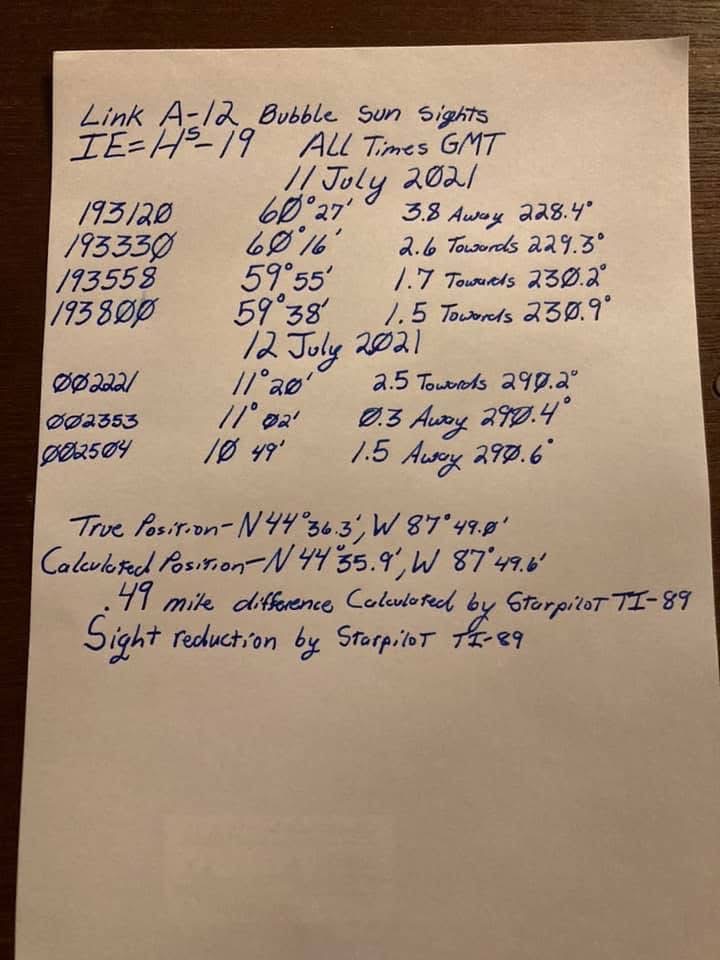 Link A-12 Bubble Sun Sights
IE=HS-19 All Times GMT
11 July 2021
193120 60°27' 3.8 Away 228.4°
193330 60°16' 2.6 Towards 229.3°
193558 59°55' 1.7 Towards 230.2°
193800 59°38' 1.5 Towards 230.9°
12 July 2021
002221 11°20' 2.5 Towards 290.2°
002353 11°02' 0.3 Away 290.4°
002504 10 49' 1.5 Away 290.6°
True Position-N44°36.3', W 87°49.0'
Calculated Position-N44°35.9', W 87°49.6'
.49 mile difference Calculated by Starpilot TI-89
Sight reduction by Starpilot TI-89